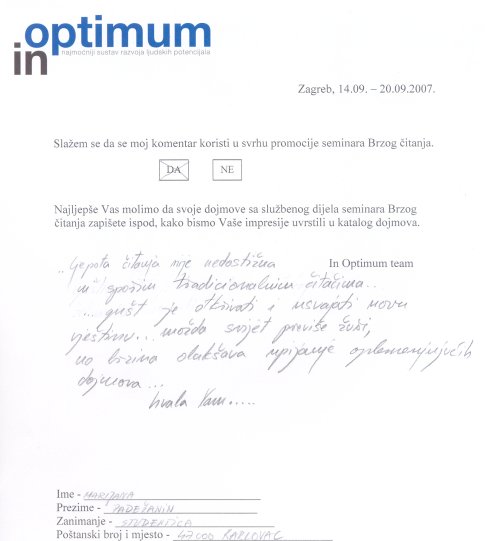 in optimum
najmoćniji sustav razvoja ljudskih potencijala
Zagreb, 14.09. – 20.09.2007.
Slažem se da se moj komentar koristi u svrhu promocije seminara Brzog čitanja.
DA NE
Najljepše Vas molimo da svoje dojmove sa službenog dijela seminara Brzog
čitanja zapišete ispod, kako bismo Vaše impresije uvrstili u katalog dojmova.
In Optimum team
„Ljepota čitanja nije nedostižna
niti sporim tradicionalnim čitačima...
... gušt je otkrivati i usvajati novu
vještinu... možda svijet previše žuri,
no brzina olakšava upijanje oplemenjujućih
dojmova...
hvala Vam.....
Ime - MARIJANA
Prezime - PADEŽANIN
Zanimanje - STUDENTICA
Poštanski broj i mjesto - 47000 KARLOVAC